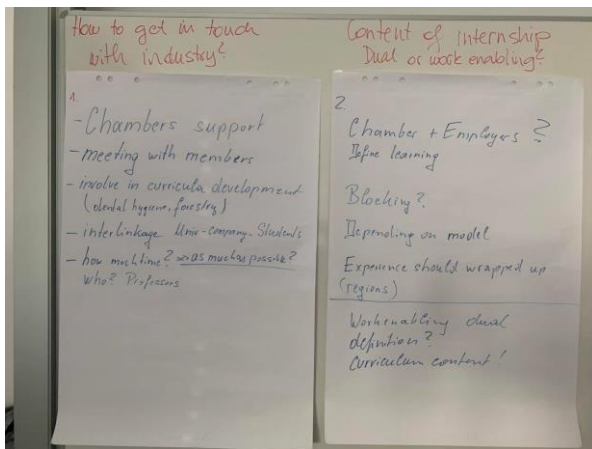 How to get in touch
with industry?
1.
- Chambers support
- meeting with members
- involve in curricula development
(dental hygiene, forestry)
- interlinkage Univ-company-Students
- how much time? as much as possible?
Who? Professors
Content of internship
Dual or work enabling?
2.
Chamber + Employers ?
Define learning
Blocking?
Depending on model
Experience should wrapped up
(regions)
Workenabling dual
definition?
Curriculum content!